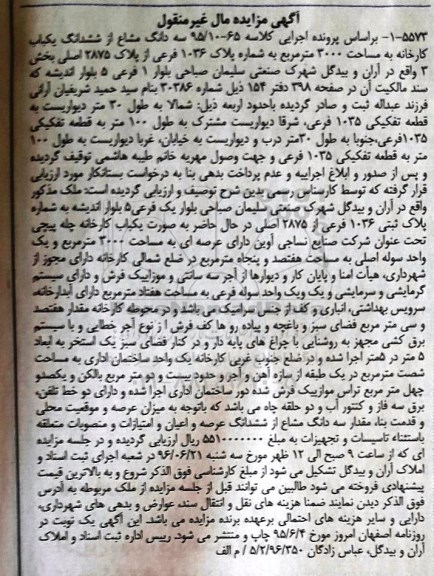 آگهی مزایده مال غیرمنقول
۱-۵۵۷۳- براساس پرونده اجرایی کلاسه ۹۵/۱۰-۶۵ سه دانگ مشاع از ششدانگ یکباب
کارخانه به مساحت ۳۰۰۰ مترمربع به شماره پلاک ۱۰۳۶ فرعی از پلاک ۲۸۷۵ اصلی بخش
۳ واقع در آران و بیدگل شهرک صنعتی سلیمان صباحی بلوار ۱ فرعی ۵ بلوار اندیشه که
سند مالکیت آن در صفحه ۳۹۸ دفتر ۱۵۴ ذیل شماره ۳۰۳۸۶ بنام سید حمید شریفیان آرانی
فرزند عبداله ثبت و صادر گردیده باحدود اربعه ذیل: شمالا به طول ۳۰ متر دیواریست به
قطعه تفکیکی ۱۰۳۵ فرعی، شرقا دیواریست مشترک به طول ۱۰۰ متر به قطعه تفکیکی
۱۰۳۵فرعی،جنوبا به طول ۳۰متر درب و دیواریست به خیابان، غربا دیواریست به طول ۱۰۰
متر به قطعه تفکیکی ۱۰۳۵ فرعی و جهت وصول مهریه خانم طیبه هاشمی توقیف گردیده
و پس از صدور و ابلاغ اجراییه و عدم پرداخت بدهی بنا به درخواست بستانکار مورد ارزیابی
قرار گرفته که توسط کارشناس رسمی بدین شرح توصیف و ارزیابی گردیده است: ملک مذکور
واقع در آران و بیدگل شهرک صنعتی سلیمان صباحی بلوار یک فرعی۵ بلوار اندیشه به شماره
پلاک ثبتی ۱۰۳۶ فرعی از ۲۸۷۵ اصلی در حال حاضر به صورت یکباب کارخانه چله پیچی
تحت عنوان شرکت صنایع نساجی آوین دارای عرصه ای به مساحت ۳۰۰۰ مترمربع و یک
واحد سوله اصلی به مساحت هفتصد و پنجاه مترمربع در ضلع شمالی کارخانه دارای مجوز از
شهرداری، هیأت امنا و پایان کار و دیوارها از آجر سه سانتی و موزاییک فرش و دارای سیستم
گرمایشی و سرمایشی و یک ویک واحد سوله فرعی به مساحت هفتاد مترمربع دارای آبدارخانه،
سرویس بهداشتی، انباری و کف از جنس سرامیک می باشد و در محوطه کارخانه مقدار هفتصد
و سی متر مربع فضای سبز و باغچه و پیاده رو ها کف فرش از نوع آجر خطایی و با سیستم
برق کشی مجهز به روشنایی با چراغ های پایه دار و در کنار فضای سبز یک استخر به ابعاد
۵ متر در ۵متر اجرا شده و در ضلع جنوب غربی کارخانه یک واحد ساختمان اداری به مساحت
شصت مترمربع در یک طبقه از سازه آهن و آجر و حدود بیست و دو متر مربع بالکن و یکصدو
چهل متر مربع تراس موازییک فرش شده دور ساختمان اداری اجرا شده و دارای دو خط تلفن،
برق سه فاز و کنتور آب و دو حلقه چاه می باشد که باتوجه به میزان عرصه و موقعیت محلی
و قدمت بنا، مقدار سه دانگ مشاع از ششدانگ عرصه و اعیان و امتیازات و منصوبات متعلقه
باستثناء تاسیسات و تجهیزات به مبلغ ۵۵۱۰۰۰۰۰۰۰ ریال ارزیابی گردیده و در جلسه مزایده
ای که از ساعت ۹ صبح الی ۱۲ ظهر مورخ سه شنبه ۹۶/۰۶/۲۱ در شعبه اجرای ثبت اسناد و
املاک آران و بیدگل تشکیل می شود از مبلغ کارشناسی فوق الذکر شروع و به بالاترین قیمت
پیشنهادی فروخته می شود طالبین می توانند قبل از جلسه مزایده از ملک مربوطه به آدرس
فوق الذکر دیدن نمایند ضمنا هزینه های نقل و انتقال سند، عوارض و بدهی های شهرداری،
دارایی و سایر هزینه های احتمالی برعهده برنده مزایده می باشد. این آگهی یک نوبت در
روزنامه اصفهان امروز مورخ ۹۵/۶/۴ چاپ و منتشر می شود. رییس اداره ثبت اسناد و املاک
آران و بیدگل، عباس زادگان ۵/۲/۹۶/۳۵۰ / م الف